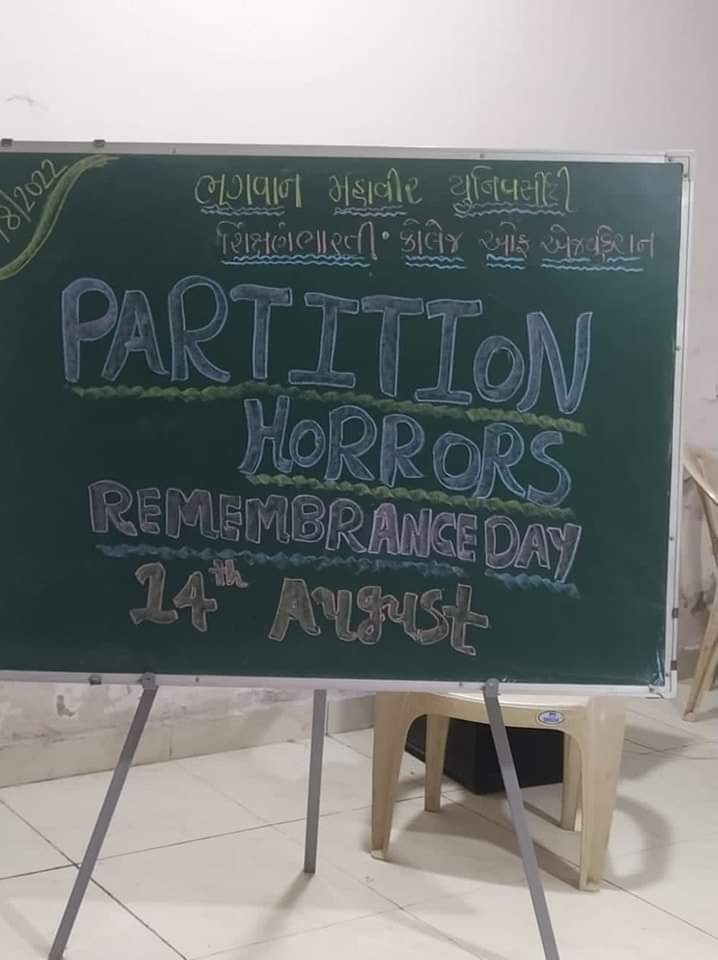 8/2022
ભગવાન મહાવીર યુનિવર્સીટી
શિક્ષણભારતી કોલેજ ઓફ એજ્યુકેશન
PARTITION
HORRORS
REMEMBRANCE DAY
14th August